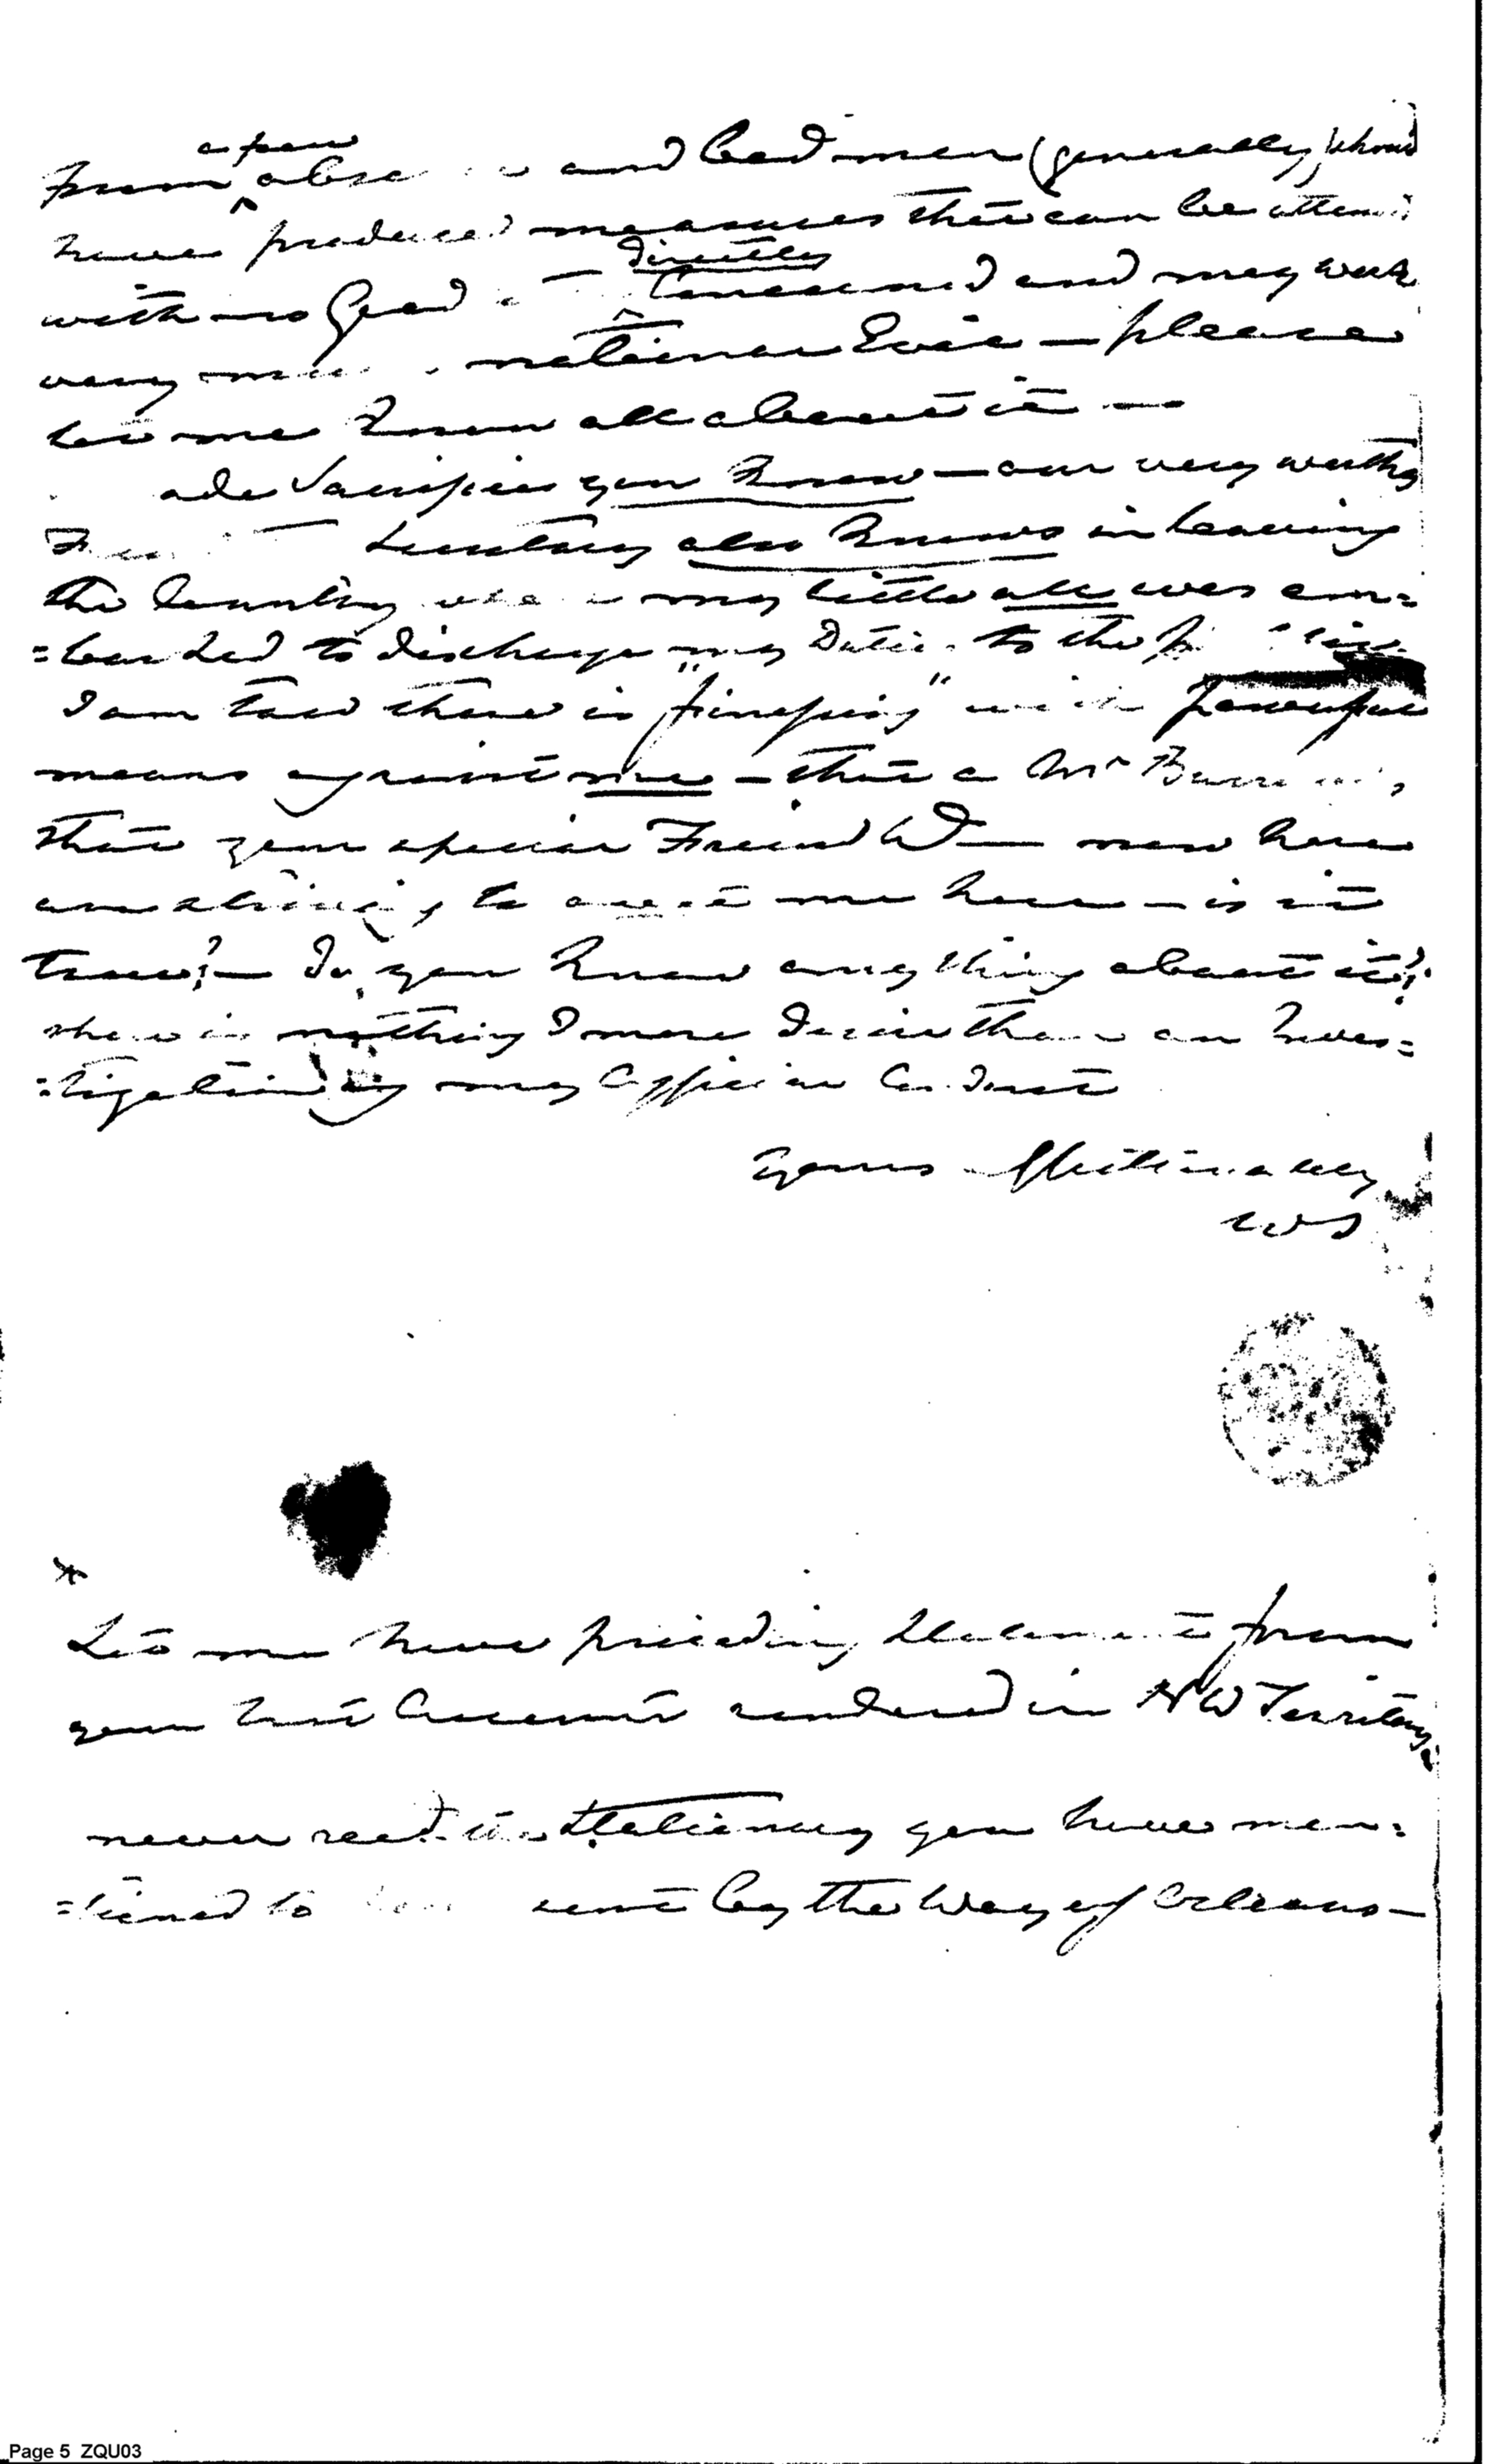 from a few and bad men (generally) should
have produced measures that can be
with no Good directly concerned and may work
very national Evil — please
let me know all about it —
Sacrifices you know — our very worthy
Secretary also knows in leaving
the Country my little all was em=
=barked to discharge my Duties to the
I am told there is "finessing" with powerful
means against me — that a Mr
that your special Friend W— now here
are to me here — is it
true? — Do you know any thing about it?
there is nothing I more desire than an Inves=
=tigation of my Official Conduct
yours Affectionately
WS
*
Let me have preceding Statement from
your last Account rendered in N W Territory
never recd. the Stationary you have men=
=tioned to have sent by the Way of Orleans —
Page 5 ZQU03